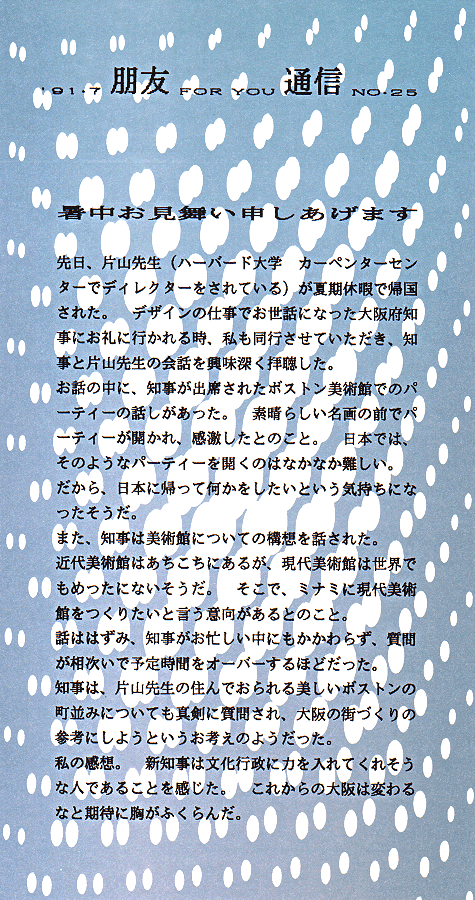 '91・7 朋友 FOR YOU 通信 NO・25
暑中お見舞い申しあげます
先日、片山先生（ハーバード大学　カーペンターセン
ターでディレクターをされている）が夏期休暇で帰国
された。　デザインの仕事でお世話になった大阪府知
事にお礼に行かれる時、私も同行させていただき、知
事と片山先生の会話を興味深く拝聴した。
お話の中に、知事が出席されたボストン美術館でのパ
ーティーの話しがあった。　素晴らしい名画の前でパ
ーティーが開かれ、感激したとのこと。　日本では、
そのようなパーティーを開くのはなかなか難しい。
だから、日本に帰って何かをしたいという気持ちにな
ったそうだ。
また、知事は美術館についての構想を話された。
近代美術館はあちこちにあるが、現代美術館は世界で
もめったにないそうだ。　そこで、ミナミに現代美術
館をつくりたいと言う意向があるとのこと。
話ははずみ、知事がお忙しい中にもかかわらず、質問
が相次いで予定時間をオーバーするほどだった。
知事は、片山先生の住んでおられる美しいボストンの
町並みについても真剣に質問され、大阪の街づくりの
参考にしようというお考えのようだった。
私の感想。　新知事は文化行政に力を入れてくれそう
な人であることを感じた。　これからの大阪は変わる
なと期待に胸がふくらんだ。